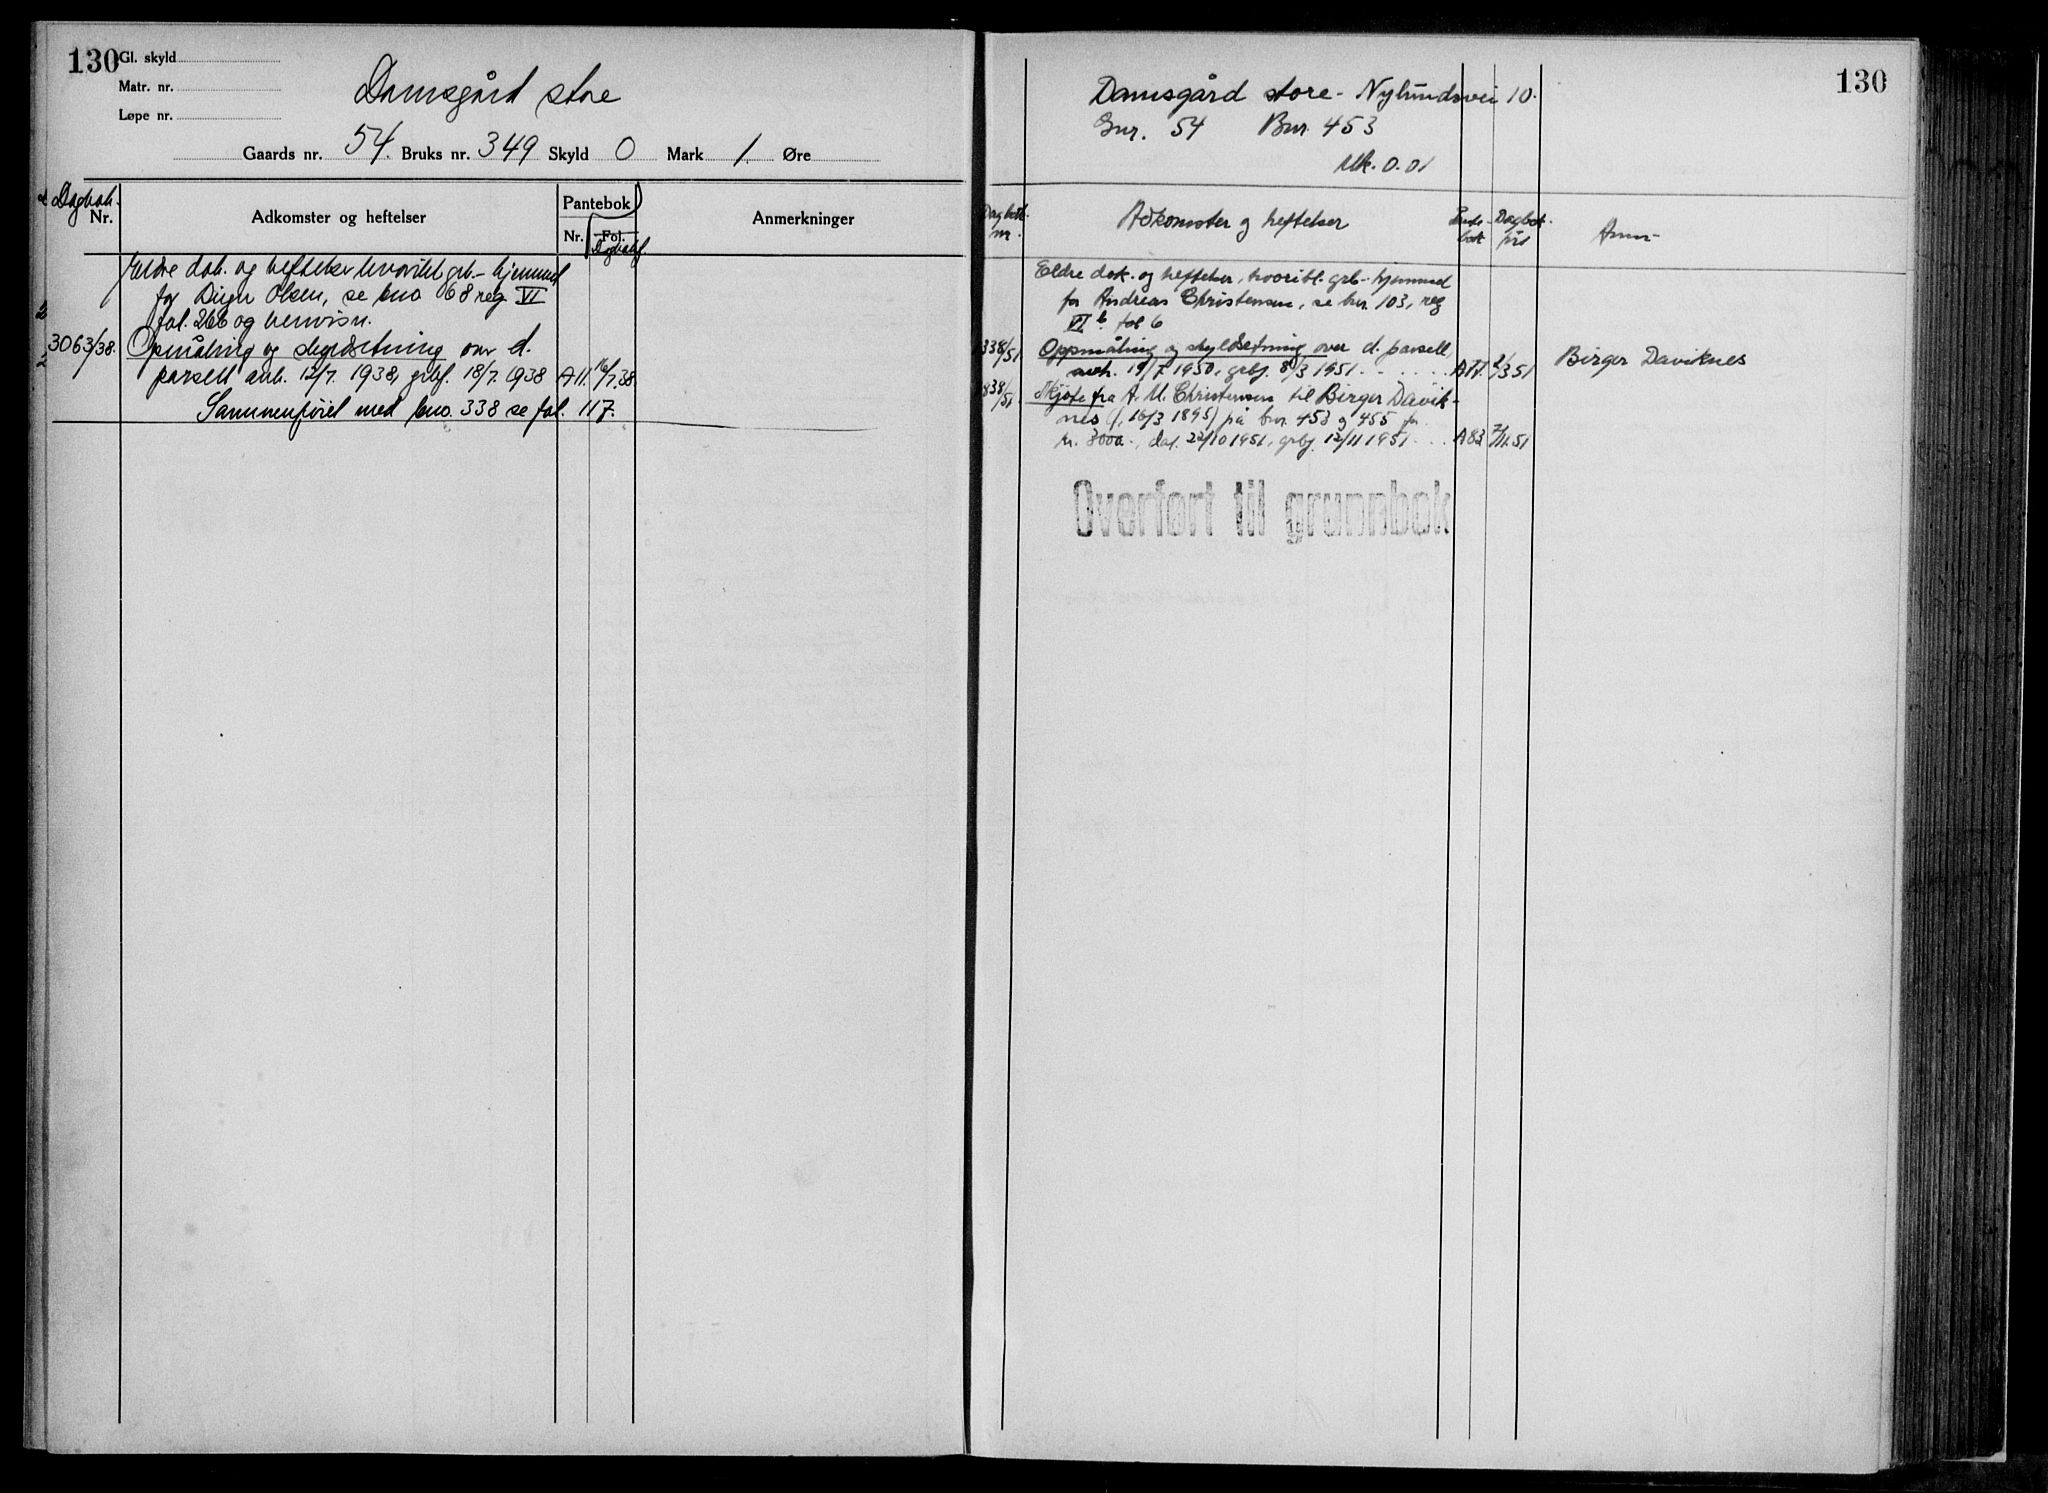 130
Gl. skyld
Matr. nr.
Løpe nr.
Damsgård store
Gaards nr. 54. Bruks nr. 349 Skyld 0 Mark 1. Øre
Dagbok.
Nr.
Adkomster og heftelser
Pantebok
Nr. Fol.
Anmerkninger
Eldre dok. og heftelser hvoriblt grb.-hjemmel
for Olsen, se bno 68 reg VI
fol. 266 og henvisn.
3063/38. Opmåling og skyldsetning over d.
parsell avh. 12/7. 1938, grbf. 18/7. 1938 A 11. 16/7.38.
Sammenføiet med bno. 338 se fol. 117.
130
Damsgård store - Nylundsvei 10.
Gnr. 54 Bnr. 453
Mk. 0.01
Dagbok
nr.
Adkomster og heftelser
Pante-
bok
Dagbok
Anm-
Eldre dok. og heftelser, hvoribl. grb-hjemmel
for Andreas Christensen, se bnr. 103, reg
VI b fol 6
338/51 Oppmåling og skyldsetning over d. parsell,
avh. 19/7 1950, grbf. 8/3 1951. /3 51 Birger Daviknes
838/51. Skjøte fra A. M. Christensen til Birger Davik-
nes (f. 16/3 1895) på bnr 453 og 455 for
kr. 3000.-, dat. 22/10 1951, grbf. 12/11 1951 A 83 /11.51
Overført til grunnbok